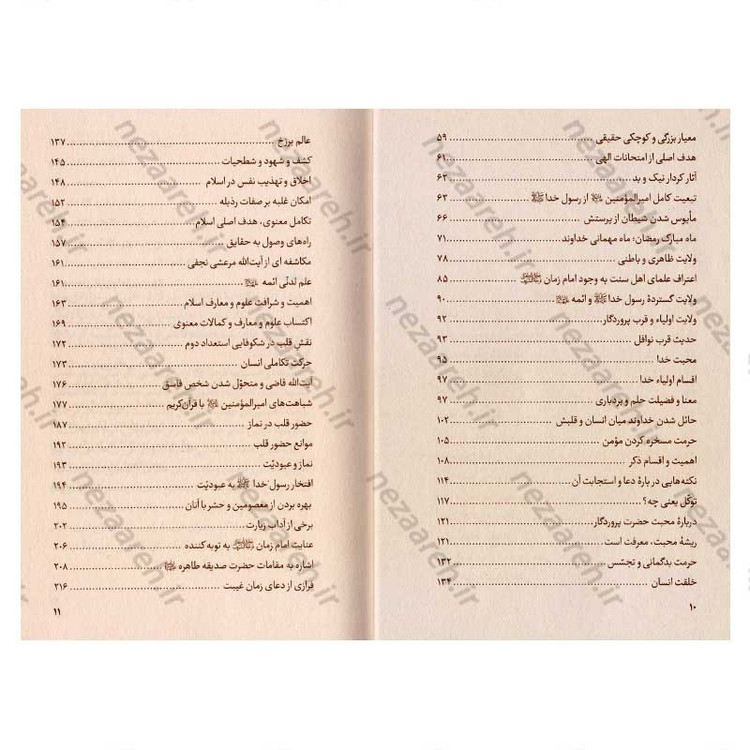 معیار بزرگی و کوچکی حقیقی ........ ۵۹
هدف اصلی از امتحانات الهی ........ ۶۱
آثار کردار نیک و بد ........ ۶۲
تبعیت کامل امیرالمؤمنین ﷺ از رسول خدا ﷺ ........ ۶۳
مأیوس شدن شیطان از پرستش ........ ۶۶
ماه مبارک رمضان؛ ماه مهمانی خداوند ........ ۷۱
ولایت ظاهری و باطنی ........ ۷۸
اعتراف علمای اهل سنت به وجود امام زمان ........ ۸۵
ولایت گستردهٔ رسول خدا ﷺ و ائمه ........ ۹۰
ولایت اولیاء و قرب پروردگار ........ ۹۲
حدیث قرب نوافل ........ ۹۳
محبت خدا ........ ۹۵
اقسام اولیاء خدا ........ ۹۷
معنا و فضیلت حلم و بردباری ........ ۹۷
حائل شدن خداوند میان انسان و قلبش ........ ۱۰۲
حرمت مسخره کردن مؤمن ........ ۱۰۵
اهمیت و اقسام ذکر ........ ۱۰۸
نکته‌هایی دربارهٔ دعا و استجابت آن ........ ۱۱۴
توکّل یعنی چه؟ ........ ۱۱۷
دربارهٔ محبت حضرت پروردگار ........ ۱۲۱
ریشهٔ محبت، معرفت است ........ ۱۲۱
حرمت بدگمانی و تجسّس ........ ۱۳۲
خلقت انسان ........ ۱۳۴
۱۰
عالم برزخ ........ ۱۳۷
کشف و شهود و شطحیات ........ ۱۴۵
اخلاق و تهذیب نفس در اسلام ........ ۱۴۸
امکان غلبه بر صفات رذیله ........ ۱۵۲
تکامل معنوی، هدف اصلی اسلام ........ ۱۵۴
راه‌های وصول به حقایق ........ ۱۵۷
مکاشفه ای از آیت‌الله مرعشی نجفی ........ ۱۶۱
علم لدنّی ائمه ........ ۱۶۱
اهمیت و شرافت علوم و معارف اسلام ........ ۱۶۳
اکتساب علوم و معارف و کمالات معنوی ........ ۱۶۹
نقش قلب در شکوفایی استعداد دوم ........ ۱۷۲
حرکت تکاملی انسان ........ ۱۷۳
آیت‌الله قاضی و متحوّل شدن شخص فاسق ........ ۱۷۶
شباهت‌های امیرالمؤمنین با قرآن‌کریم ........ ۱۷۷
حضور قلب در نماز ........ ۱۸۷
موانع حضور قلب ........ ۱۹۲
نماز و عبودیّت ........ ۱۹۳
افتخار رسول خدا ﷺ به عبودیّت ........ ۱۹۴
بهره بردن از معصومین و حشر با آنان ........ ۱۹۵
برخی از آداب زیارت ........ ۲۰۲
عنایت امام زمان به توبه کننده ........ ۲۰۶
اشاره به مقامات حضرت صدیقه طاهره ........ ۲۰۸
فرازی از دعای زمان غیبت ........ ۳۱۶
۱۱
nezaareh.ir